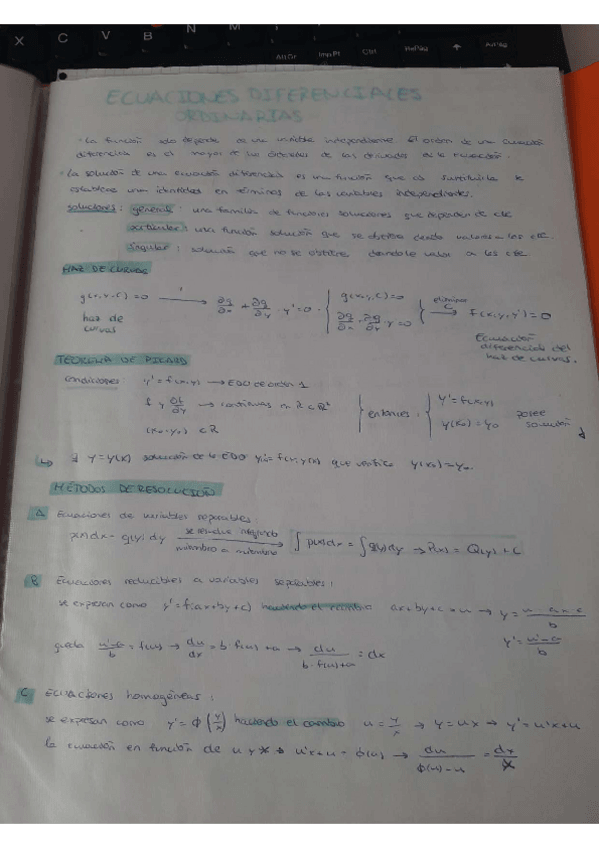 X C V B N M
Alt Gr Imp Pt Ctrl RePág ↑ AvPág
ECUACIONES DIFERENCIALES
ORDINARIAS
· La función solo depende de una variable independiente. El orden de una ecuación
diferencial es el mayor de los órdenes de las derivadas de la ecuación.
· La solución de una ecuación diferencial es una función que al sustituirla
establece una identidad en términos de las variables independientes.
soluciones: general: una familia de funciones soluciones que dependen de cte
particular: una función solución que se obtiene dando valores a las cte.
singular: solución que no se obtiene dándole valor a las cte.
HAZ DE CURVAS
g(x,y,C)=0 → ∂g/∂x + ∂g/∂y · y'=0 · { g(x,y,C)=0 ∂g/∂x · ∂g/∂y y'=0 } eliminar C → f(x,y,y')=0
haz de curvas
Ecuación diferencial del haz de curvas.
TEOREMA DE PICARD
condiciones: y'=f(x,y) → EDO de orden 1
f y ∂f/∂y → continuas en R ⊂ ℝ² } entonces: { y'=f(x,y) y(x₀)=y₀ posee solución
(x₀,y₀) ∈ R
↳ y=y(x) solución de la EDO y'=f(x,y(x)) que verifica y(x₀)=y₀.
MÉTODOS DE RESOLUCIÓN
A Ecuaciones de variables separables
p(x)dx = q(y)dy se resuelve integrando miembro a miembro → ∫p(x)dx = ∫q(y)dy → P(x) = Q(y) + C
B Ecuaciones reducibles a variables separables:
se expresan como y'=f(ax+by+c) haciendo el cambio ax+by+c = u → y = u-ax-c/b
y' = u'-a/b
queda u'-a/b = f(u) → du/dx = b·f(u)+a → du/b·f(u)+a = dx
C Ecuaciones homogéneas:
se expresan como y'=ϕ(y/x) haciendo el cambio u=y/x → y=ux → y'=u'x+u
la ecuación en función de u y x → u'x+u = ϕ(u) → du/ϕ(u)-u = dx/x